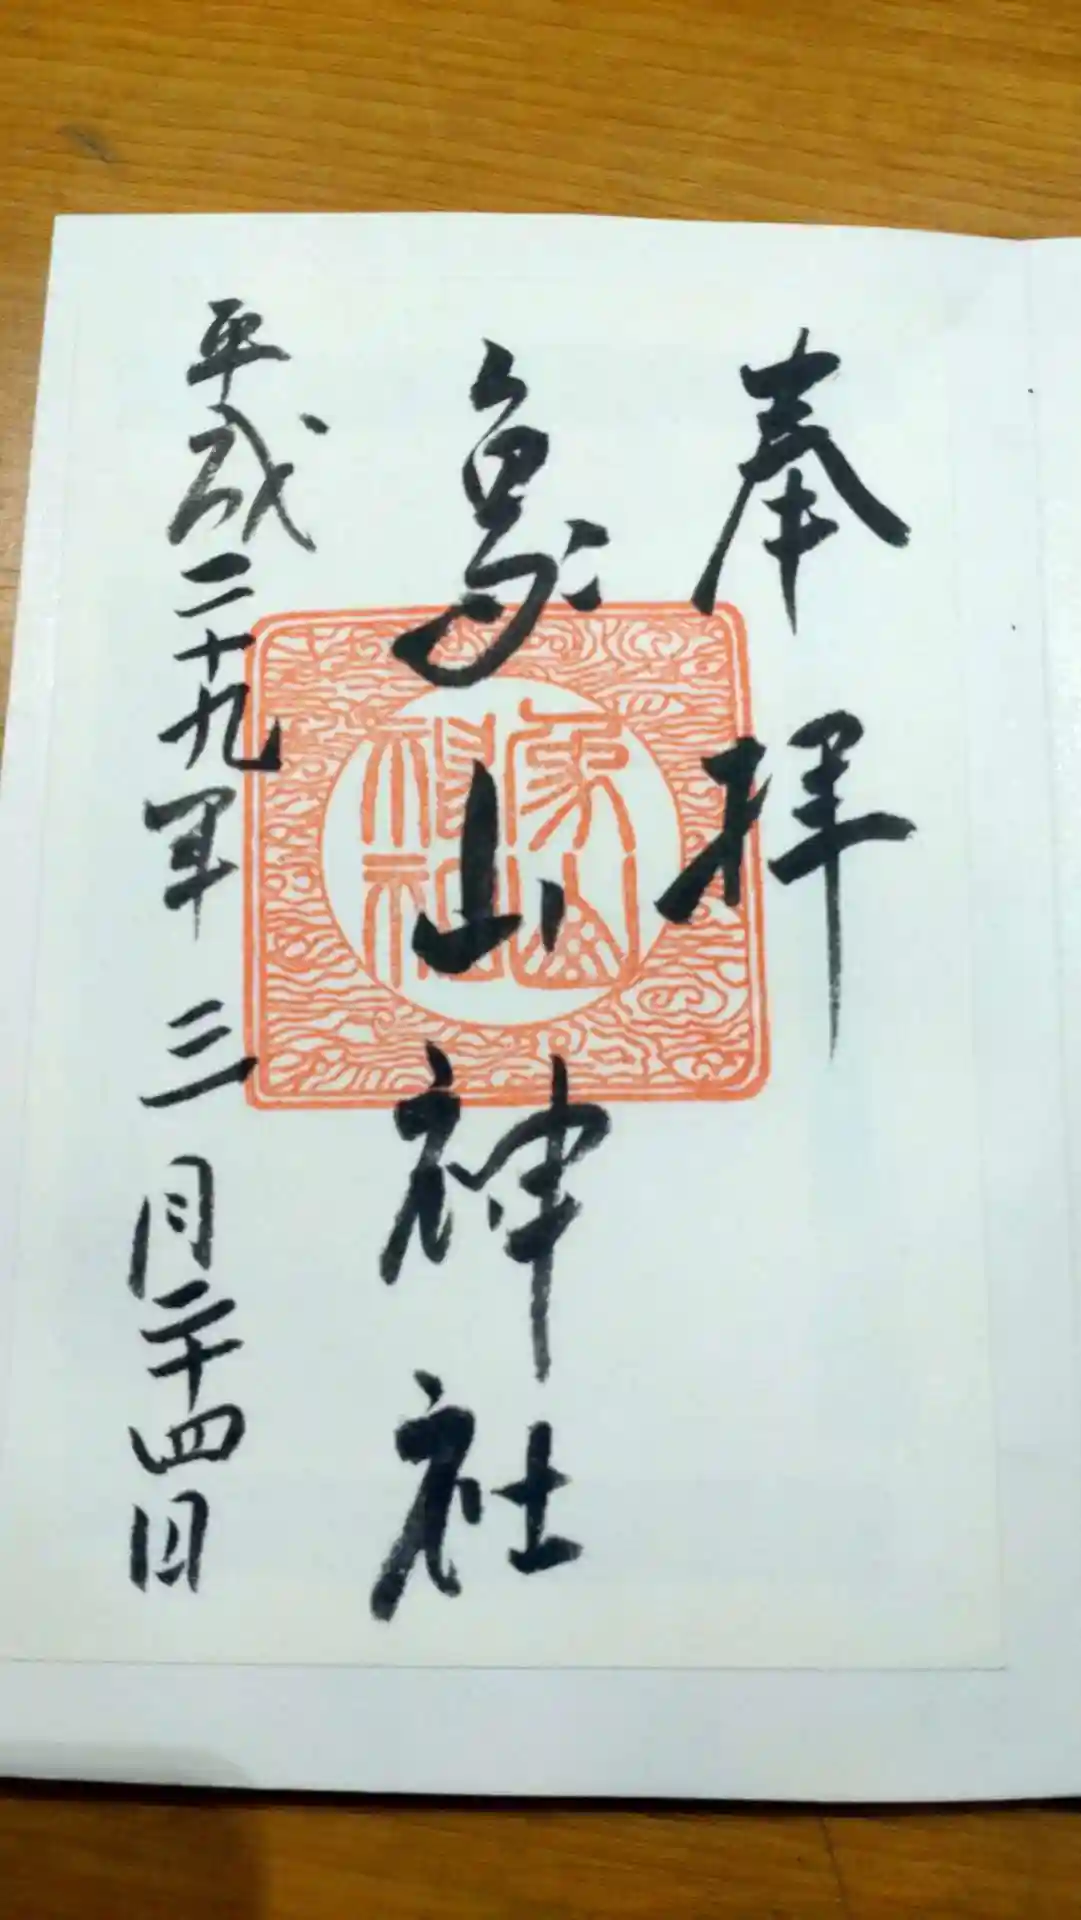 奉拝
象山神社
平成二十九年三月二十四日
象山
神社